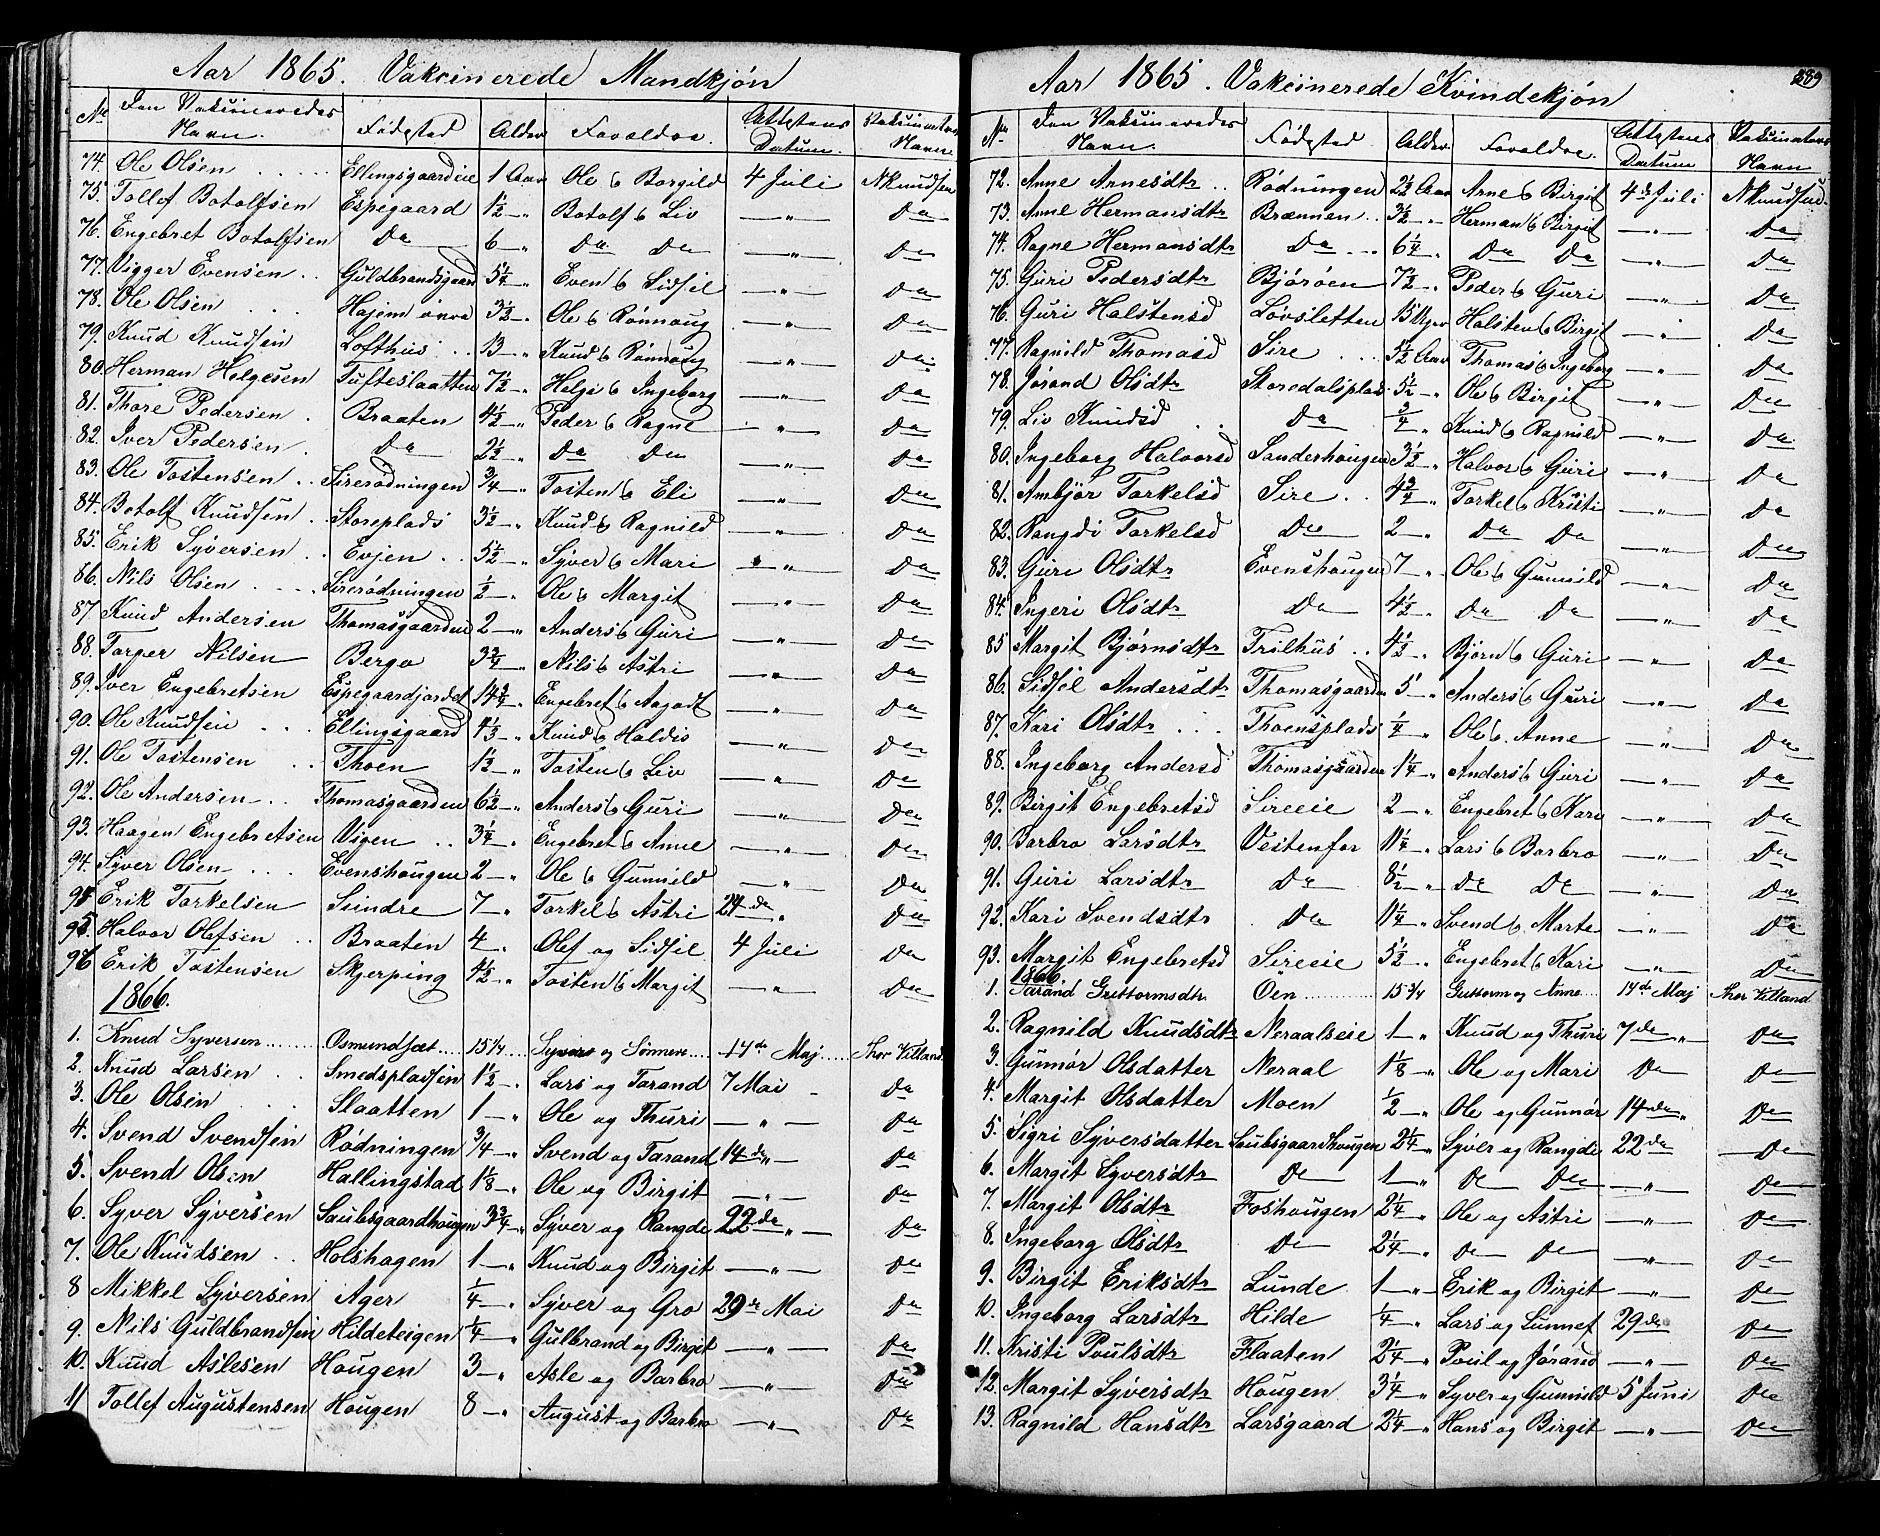 Aar 1865. Vakcinerede Mandkjøn
No Den Vaksineredes Navn. Fødested Alder Forældre. Attestens Datum. Vaksinatørens Navn.
74. Ole Olsen Ellingsgaardeie 1 Aar Ole & Borgild 4 Juli NKnudsen
75. Tollef Botolfsen Espegaard 1½ — „ Botolf & Liv — „ — Do
76. Engebret Botolfsen Do 6 — „ Do Do — „ — Do
77. Vigger Evensen Guldbrandsgaard 5¼ „ Even & Sidsel — „ — Do
78. Ole Olsen Hajem øvre 3½ — „ Ole & Rønnoug — „ — Do
79. Knud Knudsen Lofthus 13 — „ Knud & Rønnoug — „ — Do
80. Herman Helgesen Tufteslaatten 7½ — „ Helge & Ingeborg — „ — Do
81. Thore Pedersen Braaten 4½ — „ Peder & Ragne — „ — Do
82. Iver Pedersen Do 2½ „ Do Do — „ — Do
83. Ole Tostensen Sirerødningen ¾ — „ Tosten & Eli — „ — Do
84. Botolf Knudsen Storeplads 3½ — „ Knud & Ragnild — „ — Do
85. Erik Syversen Evjen 5½ — „ Syver & Mari — „ — Do
86. Nils Olsen Sirerødningen ½ — „ Ole & Margit — „ — Do
87 Knud Andersen Thomasgaarden 2 — „ Anders & Guri — „ — Do
88. Torger Nilsen Berge 3¾ — „ Nils & Astri — „ — Do
89. Iver Engebretsen Espegaardjordet 14¾ „ Engebret & Aagodt — „ — Do
90. Ole Knudsen Ellingsgaard 4⅓ „ Knud & Haldis — „ — Do
91. Ole Tostensen Thoen 1½ — „ Tosten & Liv — „ — Do
92. Ole Andersen Thomasgaarden 6½ — „ Anders & Guri — „ — Do
93. Haagen Engebretsen Vigen 3¼ „ Engebret & Anne — „ — Do
94. Syver Olsen Evenshougen 2 — „ Ole & Gunnild — „ — Do
94 Erik Torkelsen Seindre 7 — „ Torkel & Astri 24de „ Do
95. Halvor Olefsen Braaten 4 — „ Olef og Sidsel 4 Juli Do
96 Erik Tostensen Skjerping 4½ — „ Tosten & Margit — „ — Do
1866.
1. Knud Syversen Osmundsæt 15¼ Syver og Sønneve 14de Maj Thor Villand
2. Knud Larsen Smedspladsen 1½ — „ Lars og Tarand 7 Mai Do
3. Ole Olsen Slaatten 1 — „ Ole og Thuri — „ — Do
4. Svend Svendsen Rødningen ¾ — „ Svend og Tarand 14de „ — Do
5. Svend Olsen Hallingstad 1⅛ — „ Ole og Birgit — „ — Do
6. Syver Syversen Saubsgaardhougen 3¾ — „ Syver og Rangdi 22de „ — Do
7. Ole Knudsen Holshagen 1 — „ Knud og Birgit — „ — Do
8 Mikkel Syversen Ager ¼ — „ Syver og Gro 29de Mai Do
9. Nils Guldbrandsen Hildeteigen ¼ — „ Gulbrand og Birgit — „ — Do
10. Knud Aslesen Hougen 3 — „ Asle og Barbro — „ — Do
11 Tollef Augustensen Hougen 8 — „ August og Barbro — „ — Do
289
Aar 1865. Vakcinerede Kvindekjøn
No Den Vaksineredes Navn. Fødested Alder. Forældre. Attestens Datum Vaksinatørens Navn
72. Anne Arnesdtr Rødningen 2½ Aar Arne & Birgit 4de Juli NKnudsen
73. Anne Hermansdtr Brænnen 3½ — „ Herman & Birgit — „ — Do
74. Ragne Hermansdtr Do 6¼ „ Do Do — „ — Do
75. Guri Pedersdtr Bjørøen 7½ „ Peder & Guri — „ — Do
76. Guri Halstensd Lovsletten 15 Uger Halsten & Birgit — „ — Do
77. Ragnild Thomasd Sire 5½ Aar Thomas & Ingeborg — „ — Do
78. Jørand Olsdtr Storedalsplads 5½ — „ Ole & Birgit — „ — Do
79. Liv Knudsd Do ¾ „ Knud & Ragnild — „ — Do
80. Ingeborg Halvorsd Sanderhougen 3½ „ Halvor & Guri — „ — Do
81. Ambjør Torkelsd Sire 4¾ „ Torkel & Kristi — „ — Do
82. Rangdi Torkelsd Do 2 — „ Do Do — „ — Do
83. Guri Olsdtr Evenshougen 7 „ Ole & Gunnild — „ — Do
84. Ingeri Olsdtr Do 4½ „ Do Do — „ — Do
85 Margit Bjørnsdtr Trilhus 4½ — „ Bjørn & Guri — „ — Do
86. Sidsel Andersdtr Thomasgaarden 5 — „ Anders & Guri — „ — Do
87. Kari Olsdtr Thoensplads ¼ „ Ole & Anne — „ — Do
88. Ingeborg Andersd Thomasgaarden 1¼ — „ Anders & Guri — „ — Do
89. Birgit Engebretsd Sireeie 2 — „ Engebret & Kari — „ — Do
90. Barbro Larsdtr Vestenfor 11¼ — „ Lars & Barbro — „ — Do
91. Guri Larsdtr Do 8½ „ Do Do — „ — Do
92. Kari Svendsdtr Do 11¼ „ Svend & Marte — „ — Do
93. Margit Engebretsd Sireeie 5½ — „ Engebret & Kari — „ — Do
1866.
1. Tarand Guttormsdtr Öen 15¾ Guttorm og Anne 14de Maj Thor Villand
2. Ragnild Knudsdtr Neraalseie 1 — „ Knud og Thuri 7de „ Do
3. Gunnør Olsdatter Neraal 1⅛ „ Ole og Mari Do Do
4. Margit Olsdatter Moen ½ — „ Ole og Gunnør 14de „ Do
5. Sigri Syversdatter Saubsgaardhougen 2¼ „ Syver og Rangdi 22de Do
6. Margit Syversdtr Do 1 — „ Do Do — „ — Do
7. Margit Olsdtr Foshougen 2¼ — „ Ole og Astri — „ — Do
8. Ingeborg Olsdtr Do 2¼ — „ Do Do — „ — Do
9. Birgit Eriksdtr Lunde 1 — „ Erik og Birgit — „ — Do
10. Ingeborg Larsdtr Hilde ¼ — „ Lars og Sunnef 29de Do
11. Kristi Poulsdtr Flaaten 2¼ — „ Poul og Jørand — „ — Do
12. Margit Syversdtr Hougen 3¼ „ Syver og Gunnild 5 Juni Do
13. Ragnild Hansdtr Larsgaard 2¼ „ Hans og Birgit — „ — Do